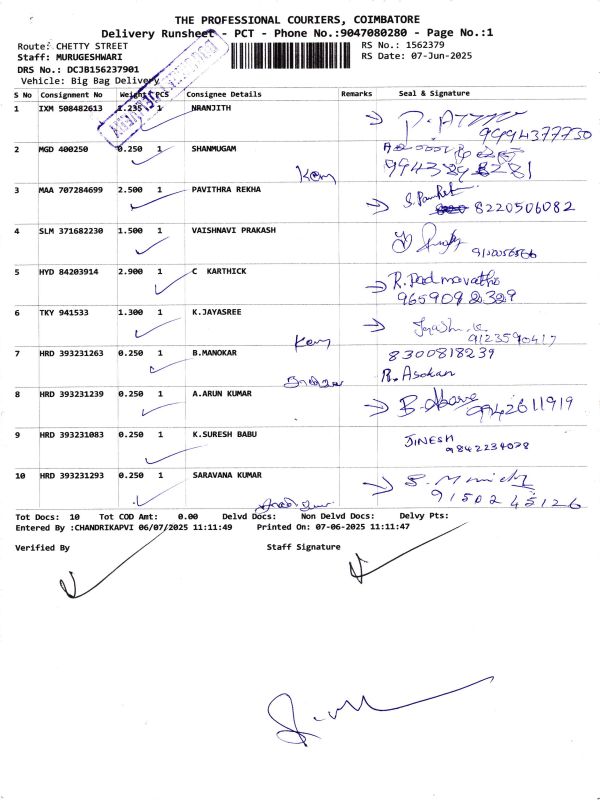 THE PROFESSIONAL COURIERS, COIMBATORE
Delivery Runsheet - PCT - Phone No.:9047080280 - Page No.:1
Route: CHETTY STREET
RS No.: 1562379
Staff: MURUGESHWARI
RS Date: 07-Jun-2025
DRS No.: DCJB156237901
Vehicle: Big Bag Delivery
S No Consignment No Weight PCS Consignee Details Remarks Seal & Signature
1 IXM 508482613 1.235 1 NRANJITH
9994377730
2 MGD 400250 0.250 1 SHANMUGAM
3 MAA 707284699 2.500 1 PAVITHRA REKHA
8220506082
4 SLM 371682230 1.500 1 VAISHNAVI PRAKASH
5 HYD 84203914 2.900 1 C KARTHICK
R. Padmavathi
9659092329
6 TKY 941533 1.300 1 K.JAYASREE
9123590417
7 HRD 393231263 0.250 1 B.MANOKAR
8300818239
R. Asokan
8 HRD 393231239 0.250 1 A.ARUN KUMAR
9942611919
9 HRD 393231083 0.250 1 K.SURESH BABU
JINESH
9842234078
10 HRD 393231293 0.250 1 SARAVANA KUMAR
9150245126
Tot Docs: 10 Tot COD Amt: 0.00 Delvd Docs: Non Delvd Docs: Delvy Pts:
Entered By :CHANDRIKAPVI 06/07/2025 11:11:49 Printed On: 07-06-2025 11:11:47
Verified By
Staff Signature